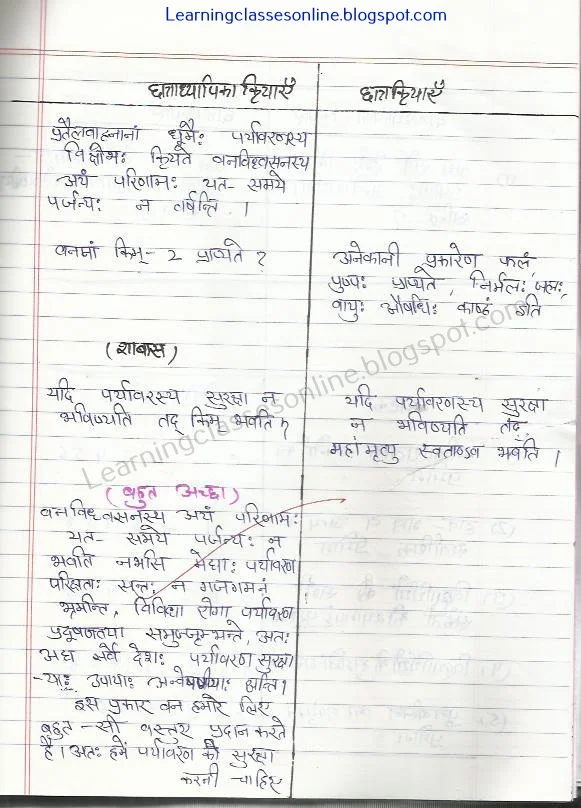 Learningclassesonline.blogspot.com
छात्राध्यापिका क्रियाएँ
छात्रक्रियाएँ
प्रतैलवाहनानां धूमैः पर्यावरणस्य
विक्षोभः क्रियते वनविध्वसनस्य
अयं परिणामः यत- समये
पर्जन्यः न वर्षन्ति ।
वनमां किम्- 2 प्राप्यते ?
अनेकानी प्रकारेण फलं,
पुष्पः प्राप्यते, निर्मलः जलः,
वायुः औषधिः काष्ठं इति
(शाबास)
यदि पर्यावरस्य सुरक्षा न
भविष्यति तद् किम् भवति ?
यदि पर्यावरणस्य सुरक्षा
न भविष्यति तद्
महामृत्यु स्वताण्डव भवति ।
Learningclassesonline.blogspot.com
(बहुत अच्छा)
वनविध्वसनस्य अयं परिणामः
यत- समये पर्जन्यः न
भवति नभसि मेघाः पर्यावरण
परिक्षताः सन्तः न गजगमनं
भ्रमन्ति, विविधा रोगा पर्यावरण
प्रदूषणतया समुज्जृम्भन्ते, अतः
अद्य सर्वे देशः पर्यावरण सुरक्षा
-याः उपायाः अन्वेषणीयाः सन्ति।
इस प्रकार वन हमारे लिए
बहुत -सी वस्तुएं प्रदान करते
है। अतः हमें पर्यावरण की सुरक्षा
करनी चाहिए